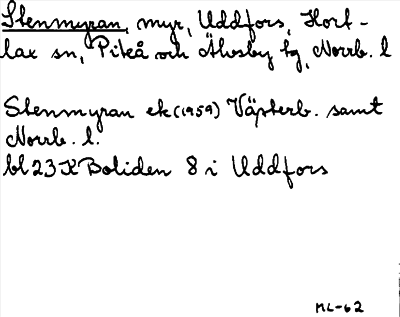 Stenmyran, myr, Uddfors, Hort-
lax sn, Piteå och Älvsby tg, Norrb. l
Stenmyran ek (1959) Västerb. samt
Norrb. l.
bl 23 K Boliden 8 i Uddfors
ML-62